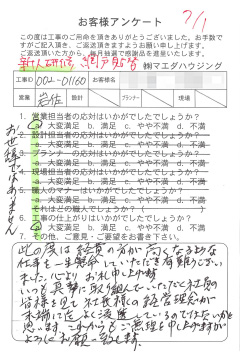 お客様アンケート
7/1
この度は工事のご用命を頂きありがとうございました。お手数で
すがご記入頂き、ご返送頂きますようお願い申し上げます。
ご返送頂いた方から、毎月抽選で感謝品を進呈いたします。
㈱マエダハウジング
工事ID 002-01160 お客様名
営業 岩佐 設計 プランナー 現場
1. 営業担当者の対応はいかがでしたでしょうか?
a. 大変満足 b. 満足 c. やや不満 d. 不満
2. 設計担当者の対応はいかがでしたでしょうか?
a. 大変満足 b. 満足 c. やや不満 d. 不満
3. プランナーの対応はいかがでしたでしょうか?
a. 大変満足 b. 満足 c. やや不満 d. 不満
4. 現場担当者の対応はいかがでしたでしょうか?
a. 大変満足 b. 満足 c. やや不満 d. 不満
5. 職人のマナーはいかがでしたでしょうか?
a. 大変満足 b. 満足 c. やや不満 d. 不満
それはどの職人でしょうか?
6. 工事の仕上がりはいかがでしたでしょうか?
a. 大変満足 b. 満足 c. やや不満 d. 不満
7. その他、ご意見・ご要望をお書き下さい。
お世辞ではありません
この度は
仕事を一生懸命していただき有難うござい
ました 心よりお礼申し上げます
いつも真摯に取り組んでいただく社長の
皆様を見て 社長様の経営理念が
末端に迄よく浸透しているのではないかと
思います。これからもご無理を申し上げますが
よろしくお願い致します。